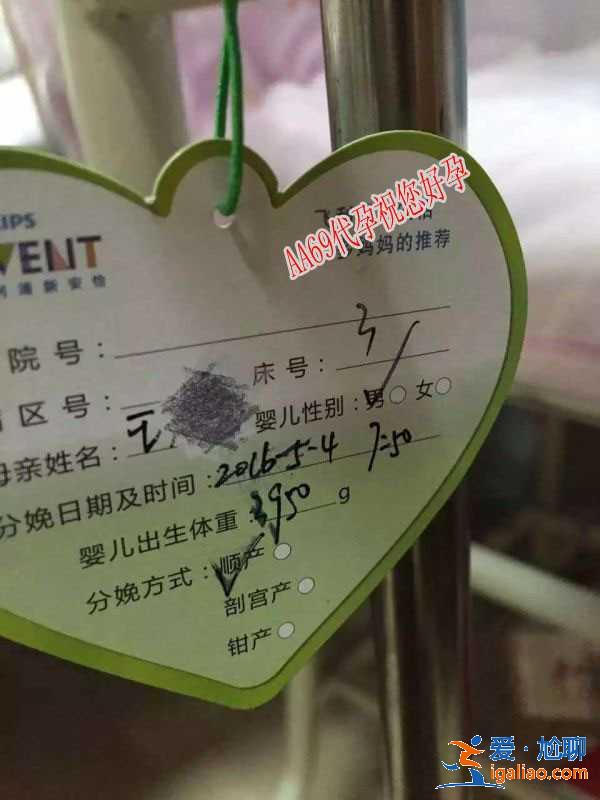 IPS
VENT
利浦新安怡
AA69代孕祝您好孕
妈妈的推荐
院号：
床号：3
区号：
婴儿性别：男 女
母亲姓名：王
分娩日期及时间：2016-5-4 7:50
婴儿出生体重：3950 g
分娩方式：顺产
剖宫产
钳产
爱·尬聊
igaliao.com